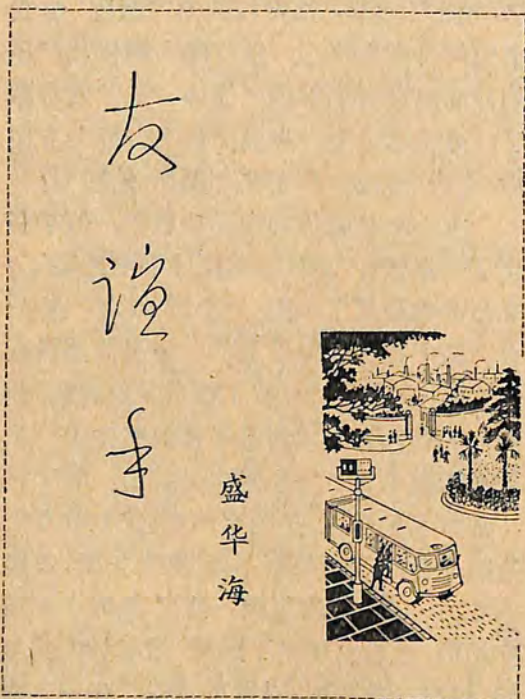 友谊手
盛华海